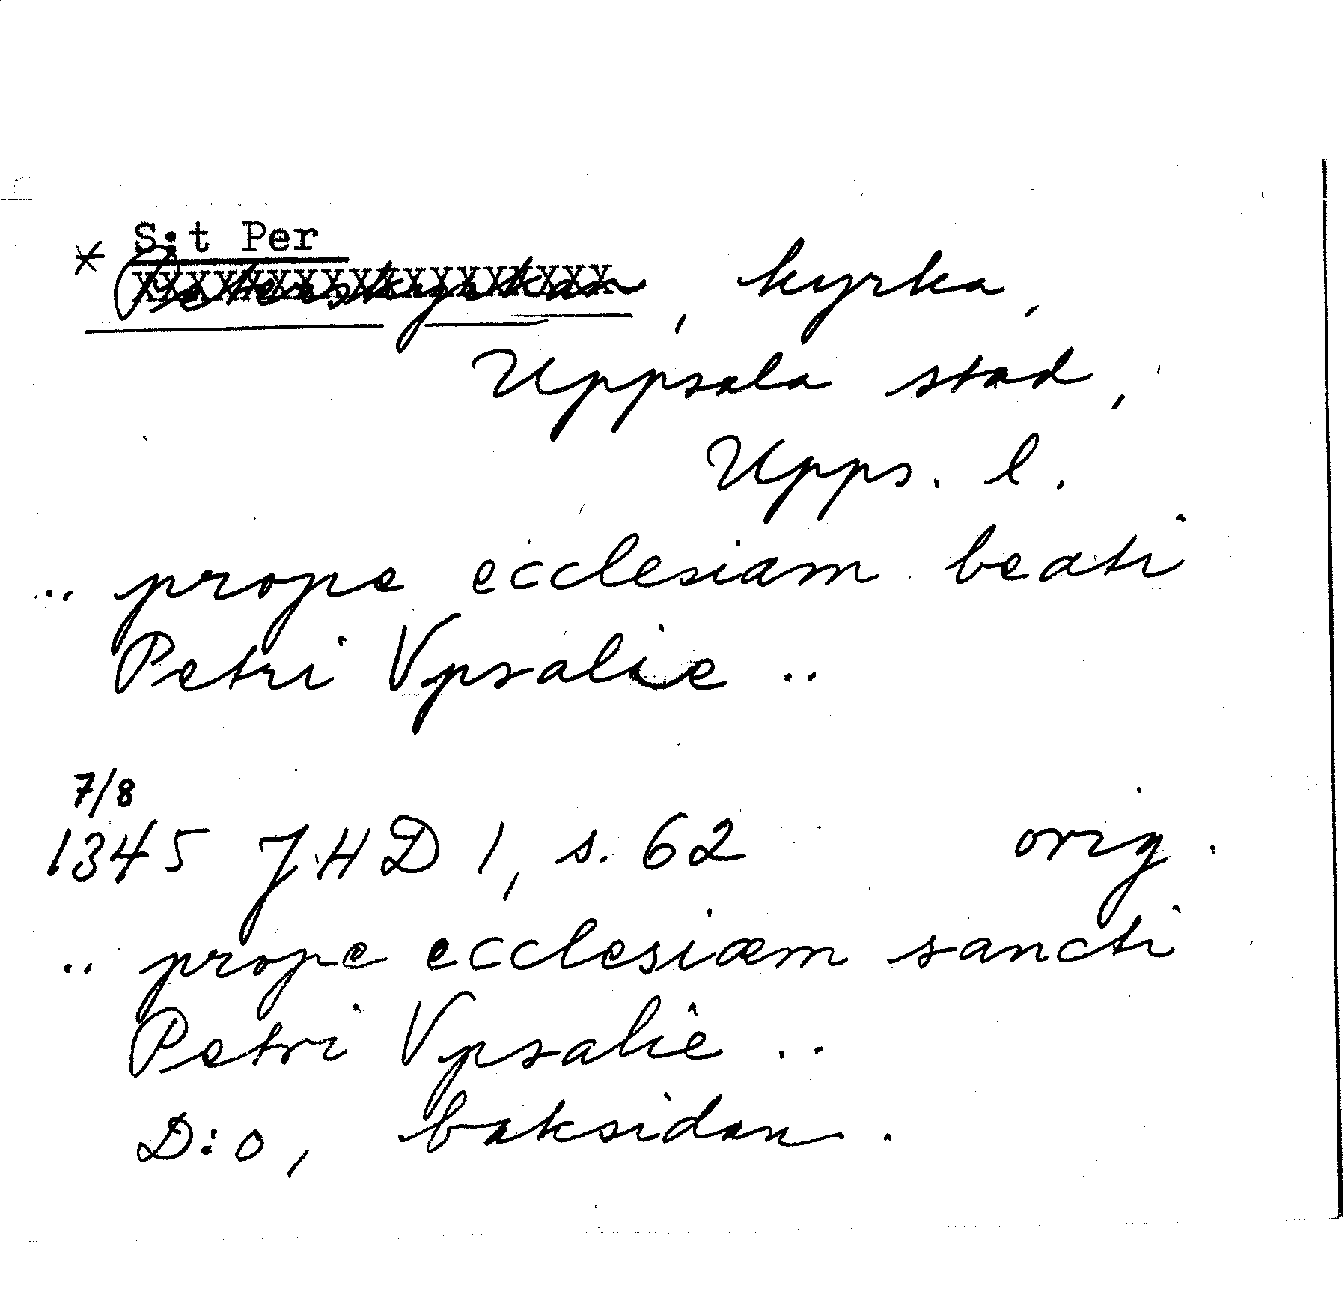 S:t Per
* Peterskyrkan, kyrka,
Uppsala stad,
Upps. l.
.. prope ecclesiam beati
Petri Vpsalie ..
7/8
1345 JHD 1, s. 62 orig.
.. prope ecclesiam sancti
Petri Vpsalie ..
D:o, baksidan.